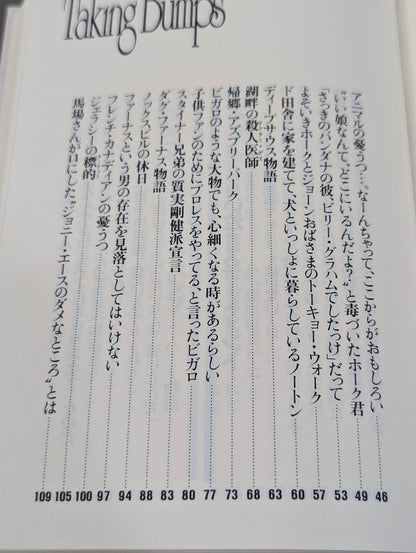 Taking Bumps
アニマルの憂うつ…。なーんちゃって、ここからがおもしろい 46
“いい娘なんて、どこにいるんだよ?”と毒づいたホーク君 49
「さっきのバンダナの彼、ビリー・グラハムでしたっけ」だって 53
よそいきホークとジョーンおばさまのトーキョー・ウォーク 57
ド田舎に家を建てて、犬といっしょに暮らしているノートン 60
ディープサウス物語 63
湖畔の殺人医師 68
帰郷・アズブリーパーク 73
ビガロのような大物でも、心細くなる時があるらしい 77
子供ファンのためにプロレスをやってる、と言ったビガロ 80
スタイナー兄弟の質実剛健派宣言 83
ダグ・ファーナス物語 88
ノックスビルの休日 94
ファーナスという男の存在を見落としてはいけない 97
フレンチ・カナディアンの憂うつ 100
ジェラシーの標的 105
馬場さんが口にした“ジョニー・エースのダメなところ”とは 109